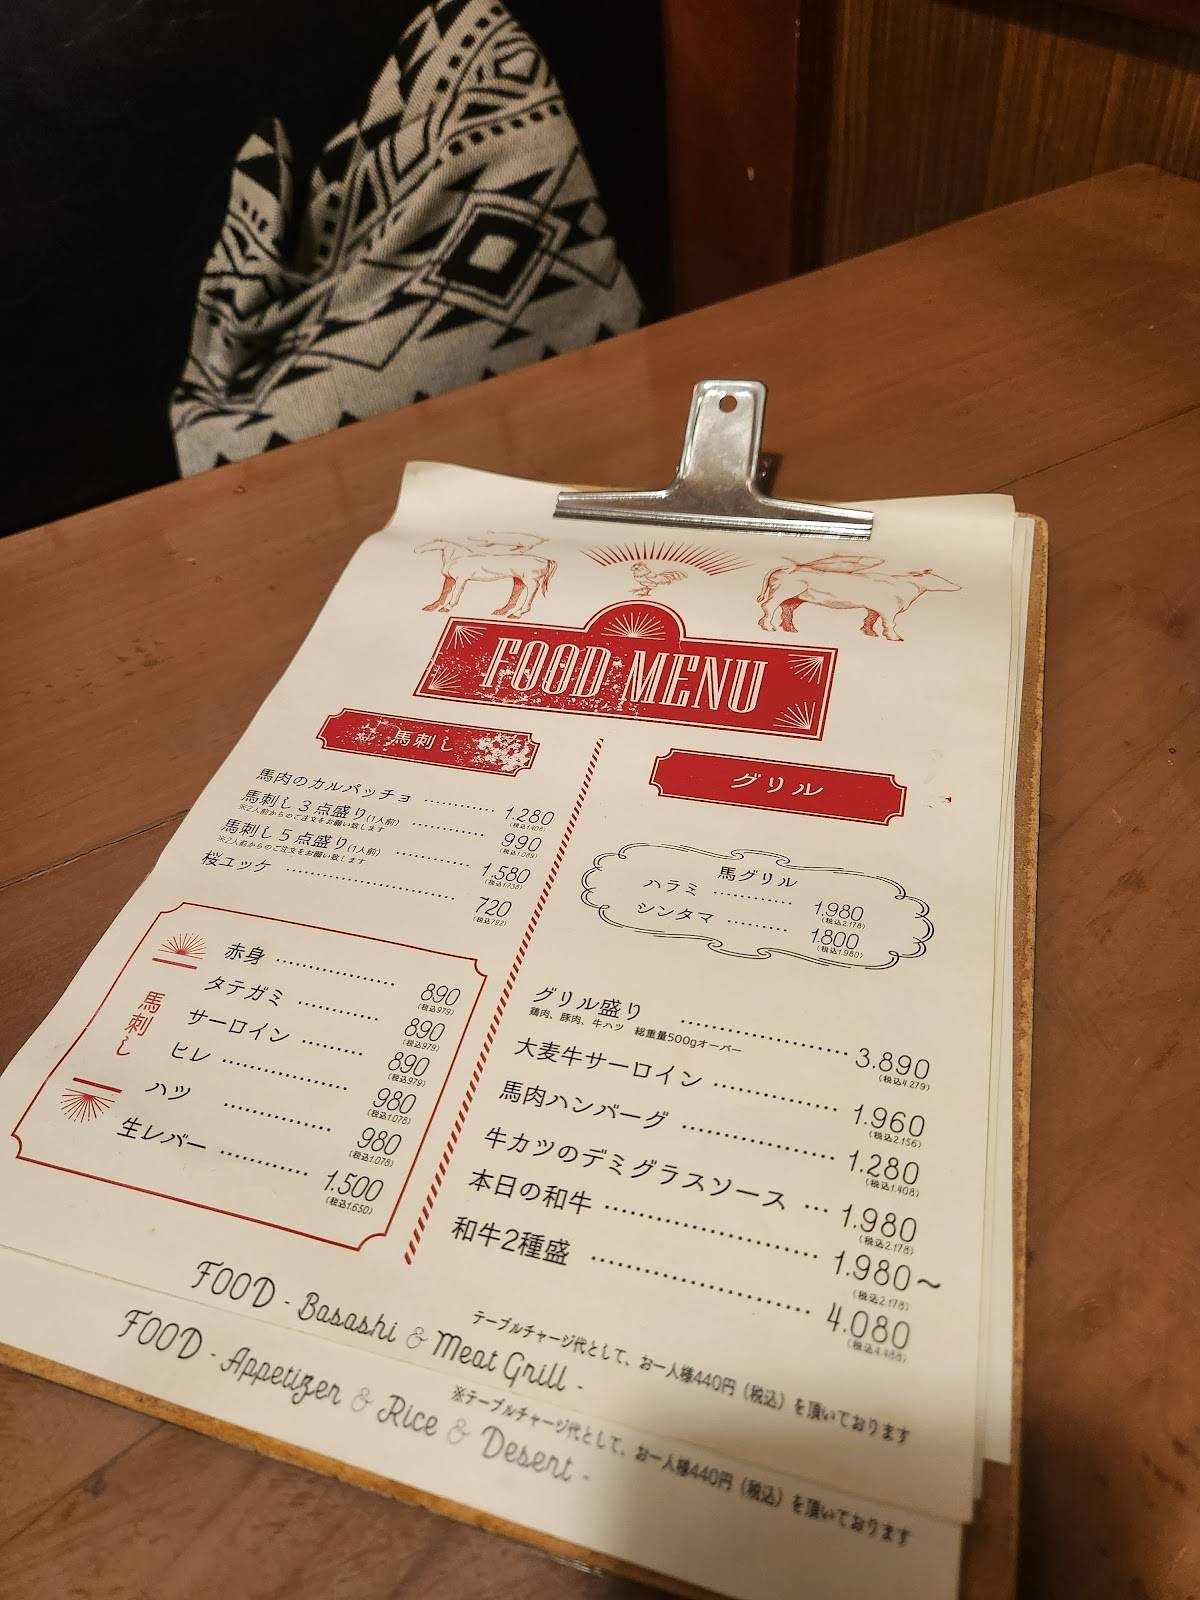 FOOD MENU
馬刺し
馬肉のカルパッチョ ………… 1.280
(税込1.408)
馬刺し3点盛り(1人前) ………… 990
※2人前からのご注文をお願い致します (税込1.089)
馬刺し5点盛り(1人前) ………… 1.580
※2人前からのご注文をお願い致します (税込1.738)
桜ユッケ ………… 720
(税込792)
馬刺し
赤身 ………… 890
(税込979)
タテガミ ………… 890
(税込979)
サーロイン ………… 890
(税込979)
ヒレ ………… 980
(税込1.078)
ハツ ………… 980
(税込1.078)
生レバー ………… 1.500
(税込1.650)
グリル
馬グリル
ハラミ ………… 1.980
(税込2.178)
シンタマ ………… 1.800
(税込1.980)
グリル盛り ………… 3.890
鶏肉、豚肉、牛ハツ 総重量500gオーバー (税込4.279)
大麦牛サーロイン ………… 1.960
(税込2.156)
馬肉ハンバーグ ………… 1.280
(税込1.408)
牛カツのデミグラスソース … 1.980
(税込2.178)
本日の和牛 ………… 1.980～
(税込2.178)
和牛2種盛 ………… 4.080
(税込4.488)
テーブルチャージ代として、お一人様440円（税込）を頂いております
FOOD - Basashi & Meat Grill -
※テーブルチャージ代として、お一人様440円（税込）を頂いております
FOOD - Appetizer & Rice & Desert -